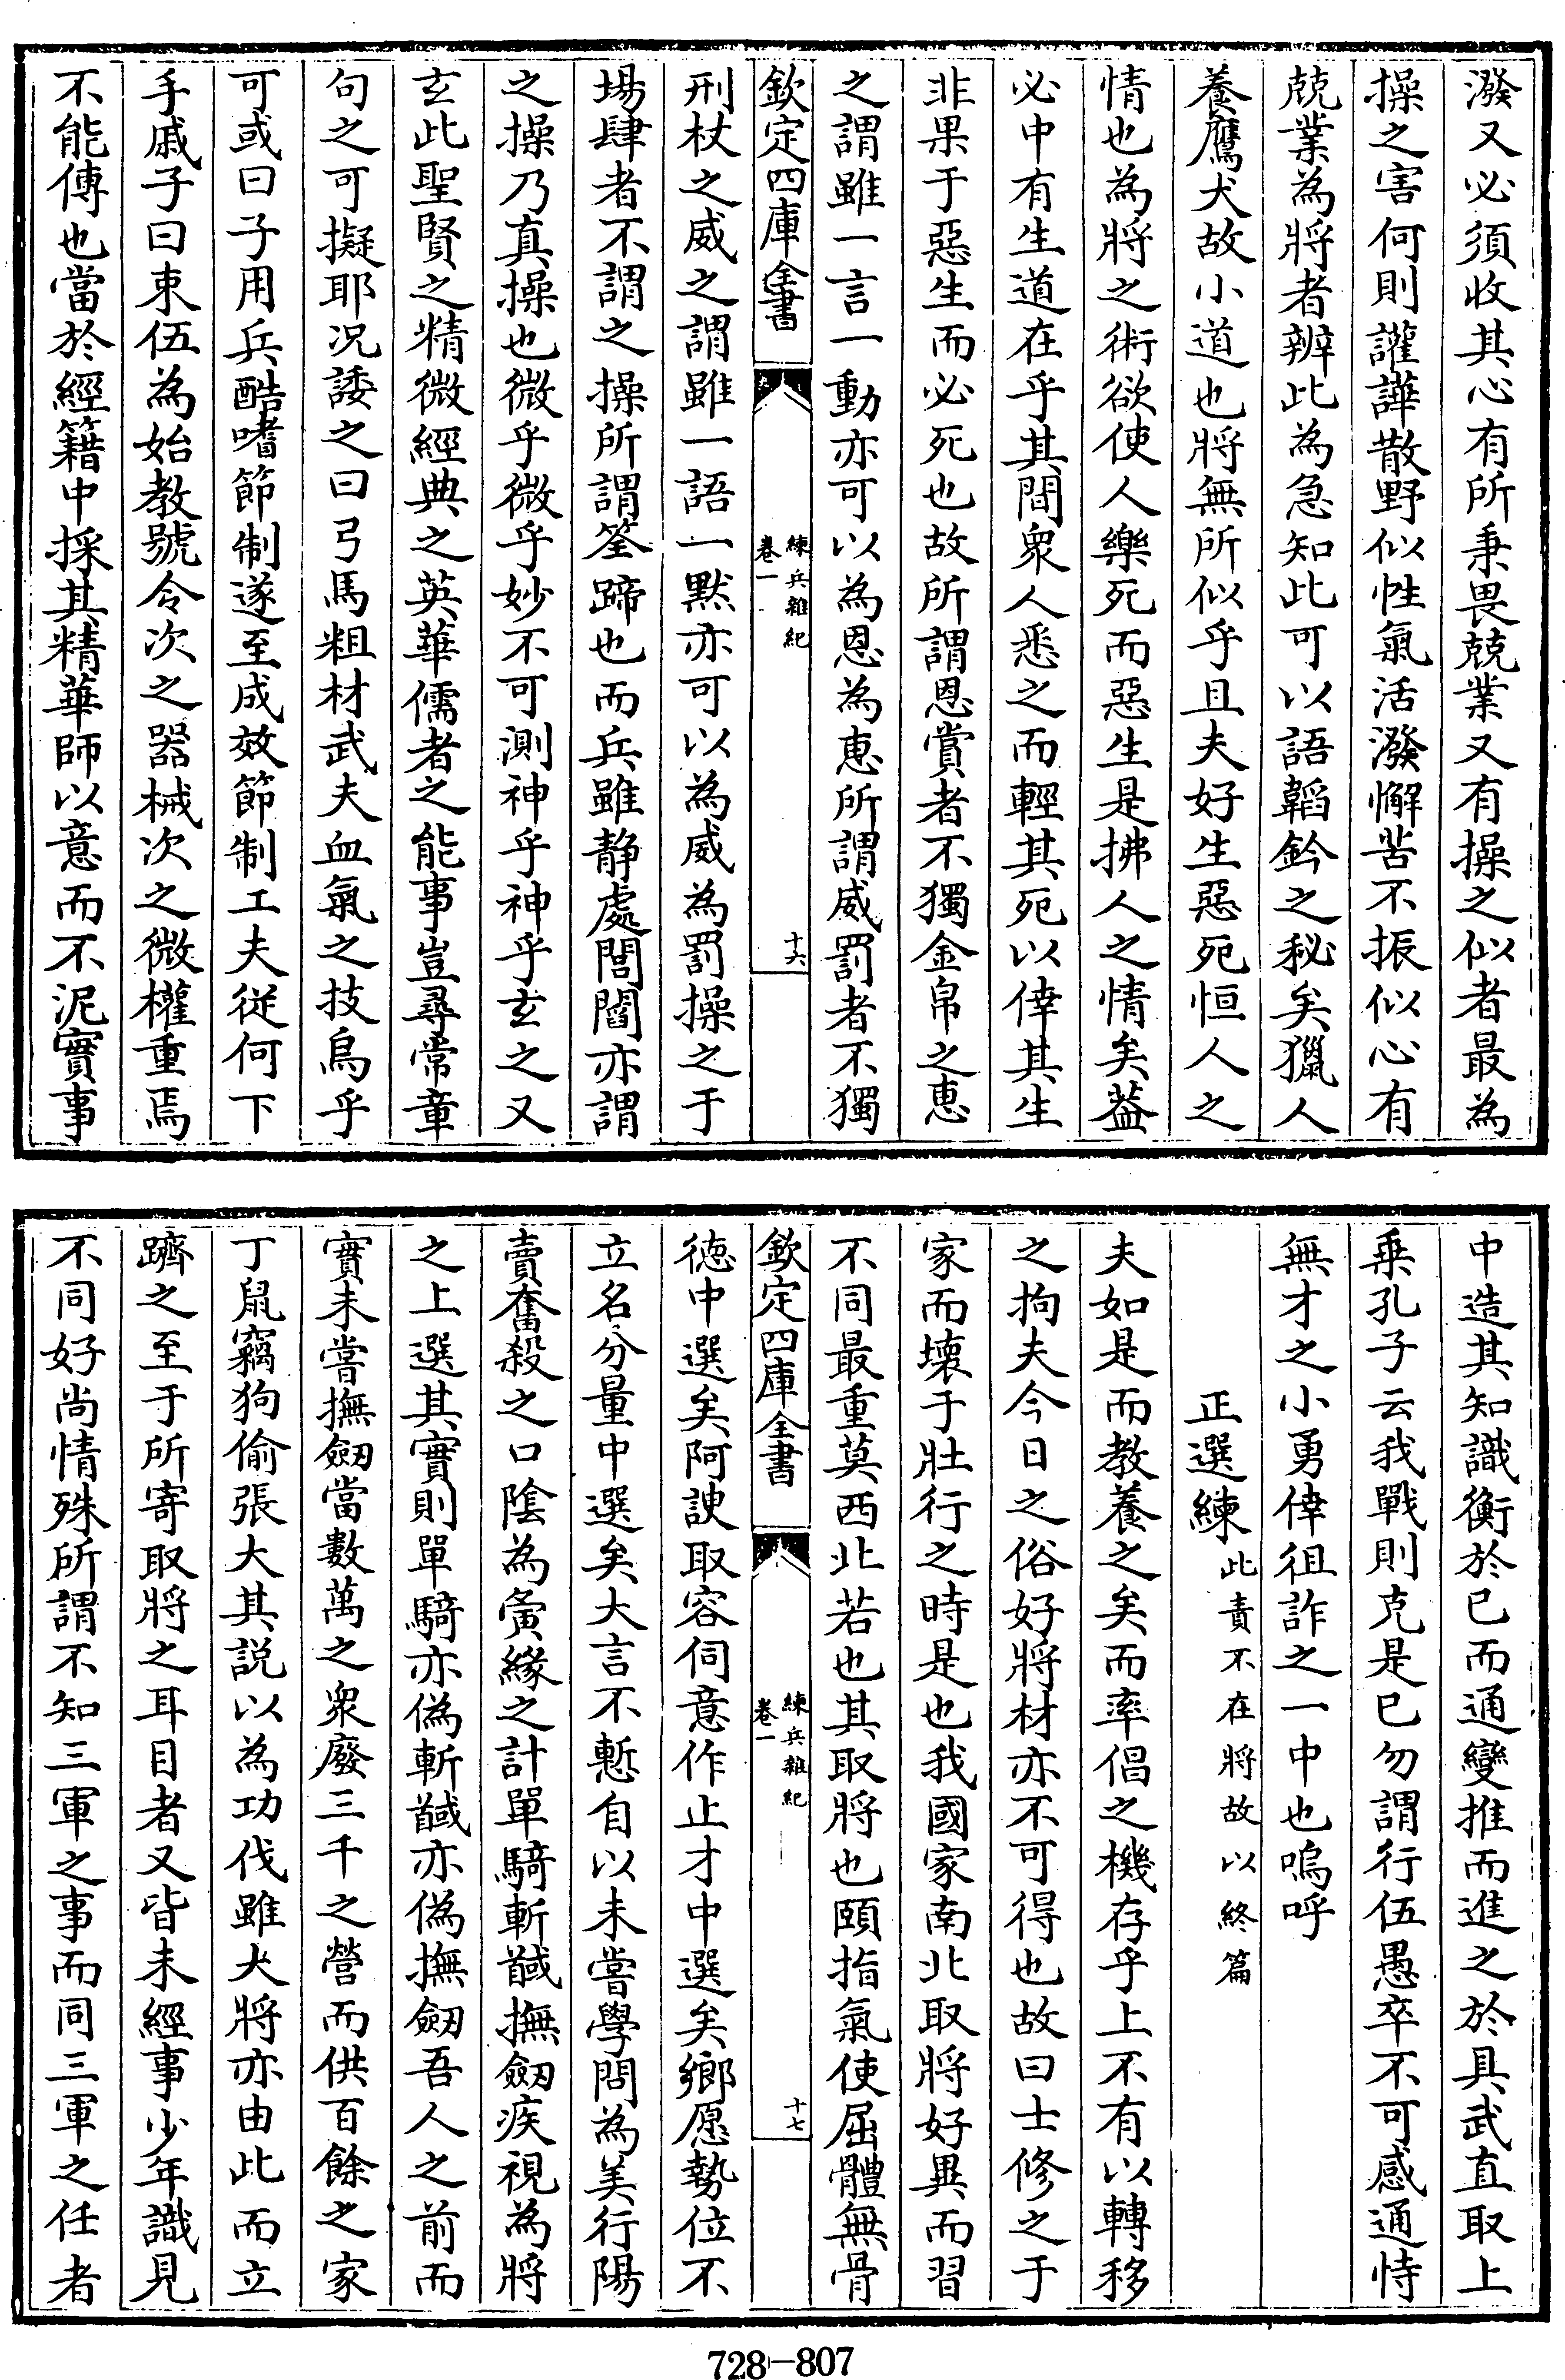 潑又必須收其心有所秉畏兢業又有操之似者最為
操之害何則讙譁散野似性氣活潑懈苦不振似心有
兢業為將者辨此為急知此可以語韜鈐之秘矣獵人
養鷹犬故小道也將無所似乎且夫好生惡死恒人之
情也為將之術欲使人樂死而惡生是拂人之情矣葢
必中有生道在乎其間衆人悉之而輕其死以倖其生
非果于惡生而必死也故所謂恩賞者不獨金帛之惠
之謂雖一言一動亦可以為恩為惠所謂威罰者不獨
欽定四庫全書
練兵雜紀
卷一
十六
刑杖之威之謂雖一語一默亦可以為威為罰操之于
場肆者不謂之操所謂筌蹄也而兵雖静處閭閻亦謂
之操乃真操也微乎微乎妙不可測神乎神乎玄之又
玄此聖賢之精微經典之英華儒者之能事豈尋常章
句之可擬耶况諉之曰弓馬粗材武夫血氣之技烏乎
可或曰子用兵酷嗜節制遂至成效節制工夫從何下
手戚子曰束伍為始教號令次之器械次之微權重焉
不能傳也當於經籍中採其精華師以意而不泥實事
中造其知識衡於已而通變推而進之於具武直取上
乗孔子云我戰則克是已勿謂行伍愚卒不可感通恃
無才之小勇倖徂詐之一中也嗚呼
正選練此責不在將故以終篇
夫如是而教養之矣而率倡之機存乎上不有以轉移
之拘夫今日之俗好將材亦不可得也故曰士修之于
家而壊于壮行之時是也我國家南北取將好異而習
不同最重莫西北若也其取將也頤指氣使屈體無骨
欽定四庫全書
練兵雜紀
卷一
十七
徳中選矣阿諛取容伺意作止才中選矣鄉愿勢位不
立名分量中選矣大言不慙自以未嘗學問為美行陽
賣奮殺之口陰為夤緣之計單騎斬馘撫劒疾視為將
之上選其實則單騎亦偽斬馘亦偽撫劒吾人之前而
實未嘗撫劒當數萬之衆廢三千之營而供百餘之家
丁鼠竊狗偷張大其説以為功伐雖大將亦由此而立
躋之至于所寄取將之耳目者又皆未經事少年識見
不同好尚情殊所謂不知三軍之事而同三軍之任者
728-807